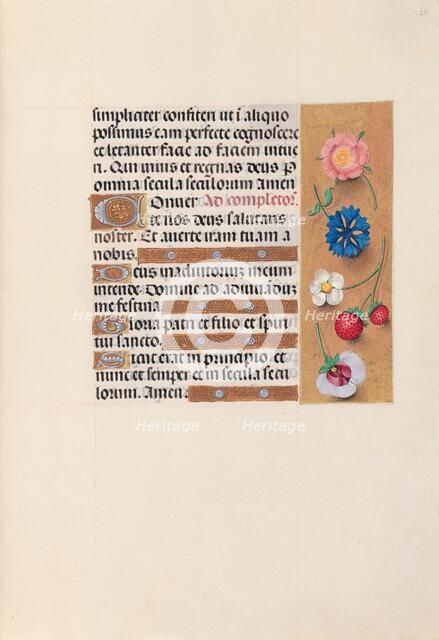 simpliciter confiteri ut i aliquo
possimus eam perfecte cognoscere
et letanter facie ad faciem intue
ri. Qui vivis et regnas deus p
omnia secula seculorum Amen
Onver Ad completor.
te nos deus salutaris
noster. Et averte iram tuam a
nobis.
Deus in adiutorium meum
intende. Domine ad adiuvadum
me festina.
Gloria patri et filio et spiri
tui sancto.
Sicut erat in principio et
nunc et semper et in secula secu
lorum. Amen.
Heritage Heritage
Heritage Heritage